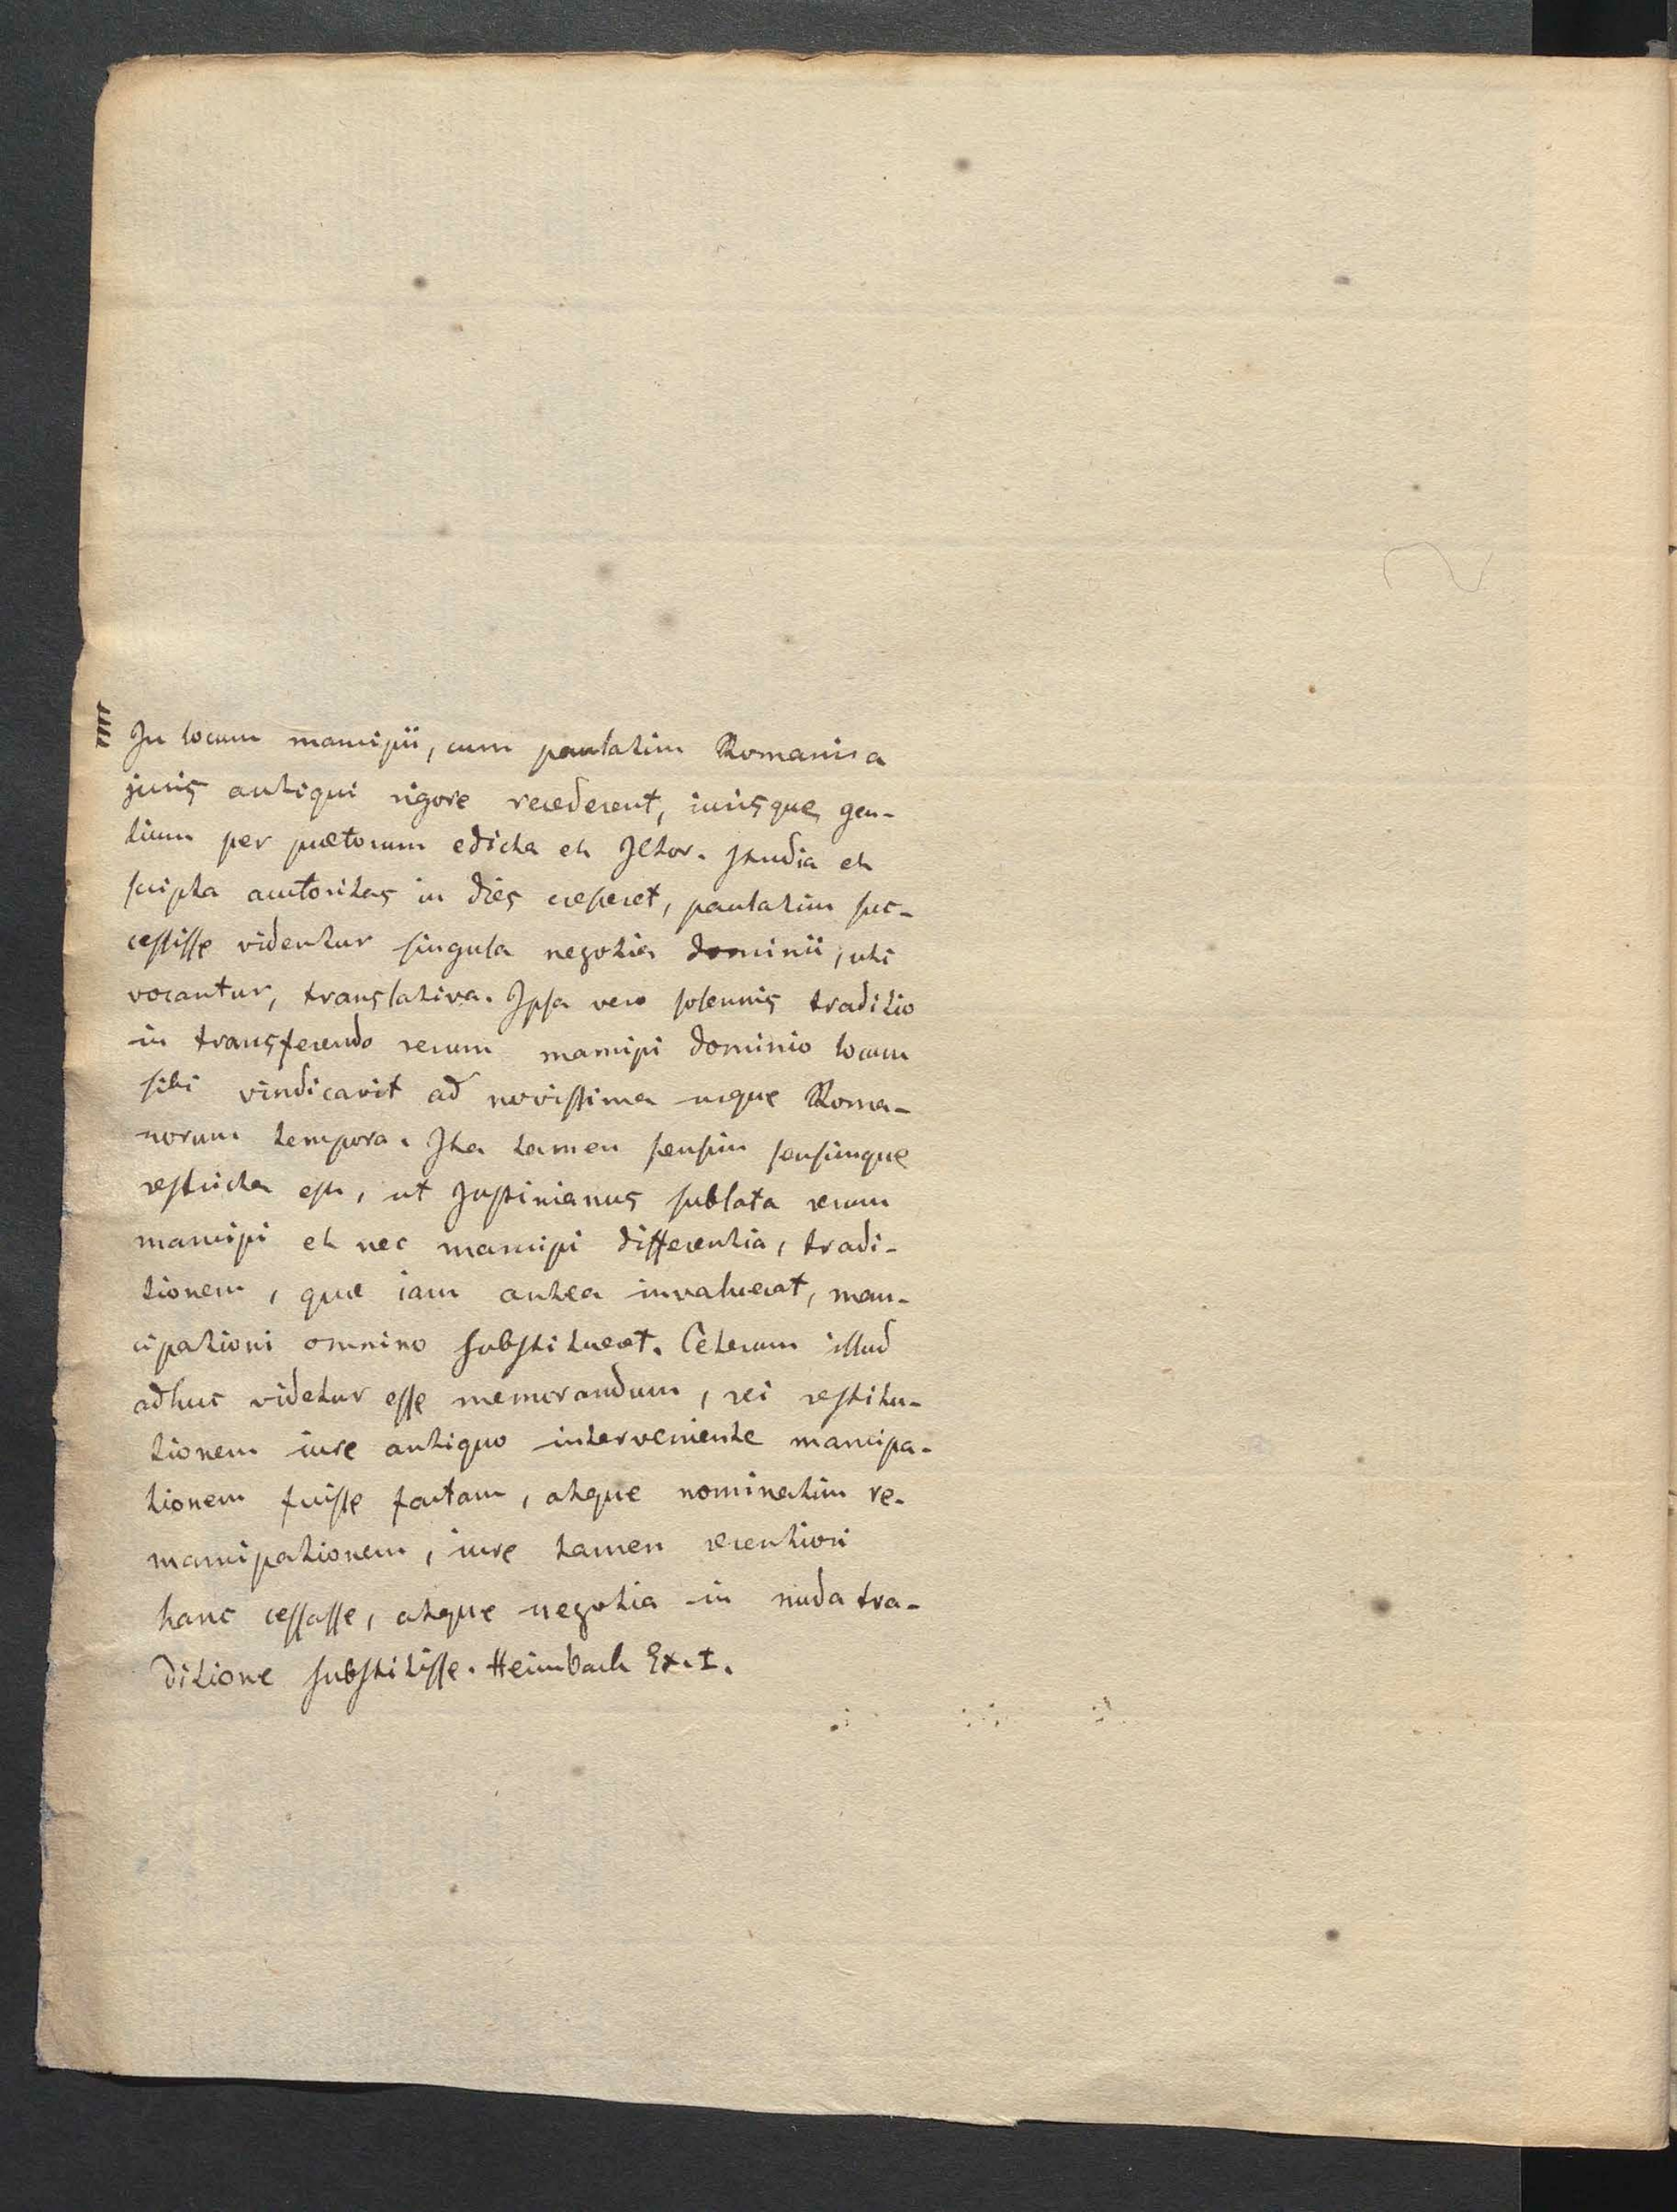 In locum mancipii, cum paulatim Romani a
juris antiqui rigore recederent, iurisque gen-
tium per prætorum edicta et JCtor. studia et
scripta auctoritas in dies cresceret, paulatim suc-
cessisse videntur singula negotia dominii, uti
vocantur, translativa. Ipsa vero solennis traditio
in transferendo rerum mancipi dominio locum
sibi vindicavit ad novissima usque Roma-
norum tempora. Ita tamen sensim sensimque
restricta est, ut Justinianus sublata rerum
mancipi et nec mancipi differentia, tradi-
tionem, quæ iam antea invaluerat, man-
cipationi omnino substitueret. Ceterum illud
adhuc videtur esse memorandum, rei restitu-
tionem iure antiquo interveniente mancipa-
tionem fuisse factam, atque nominatim re-
mancipationem, iure tamen recentiori
hanc cessasse, atque negotia in nuda tra-
ditione substitisse. Heimbach Ex. I.